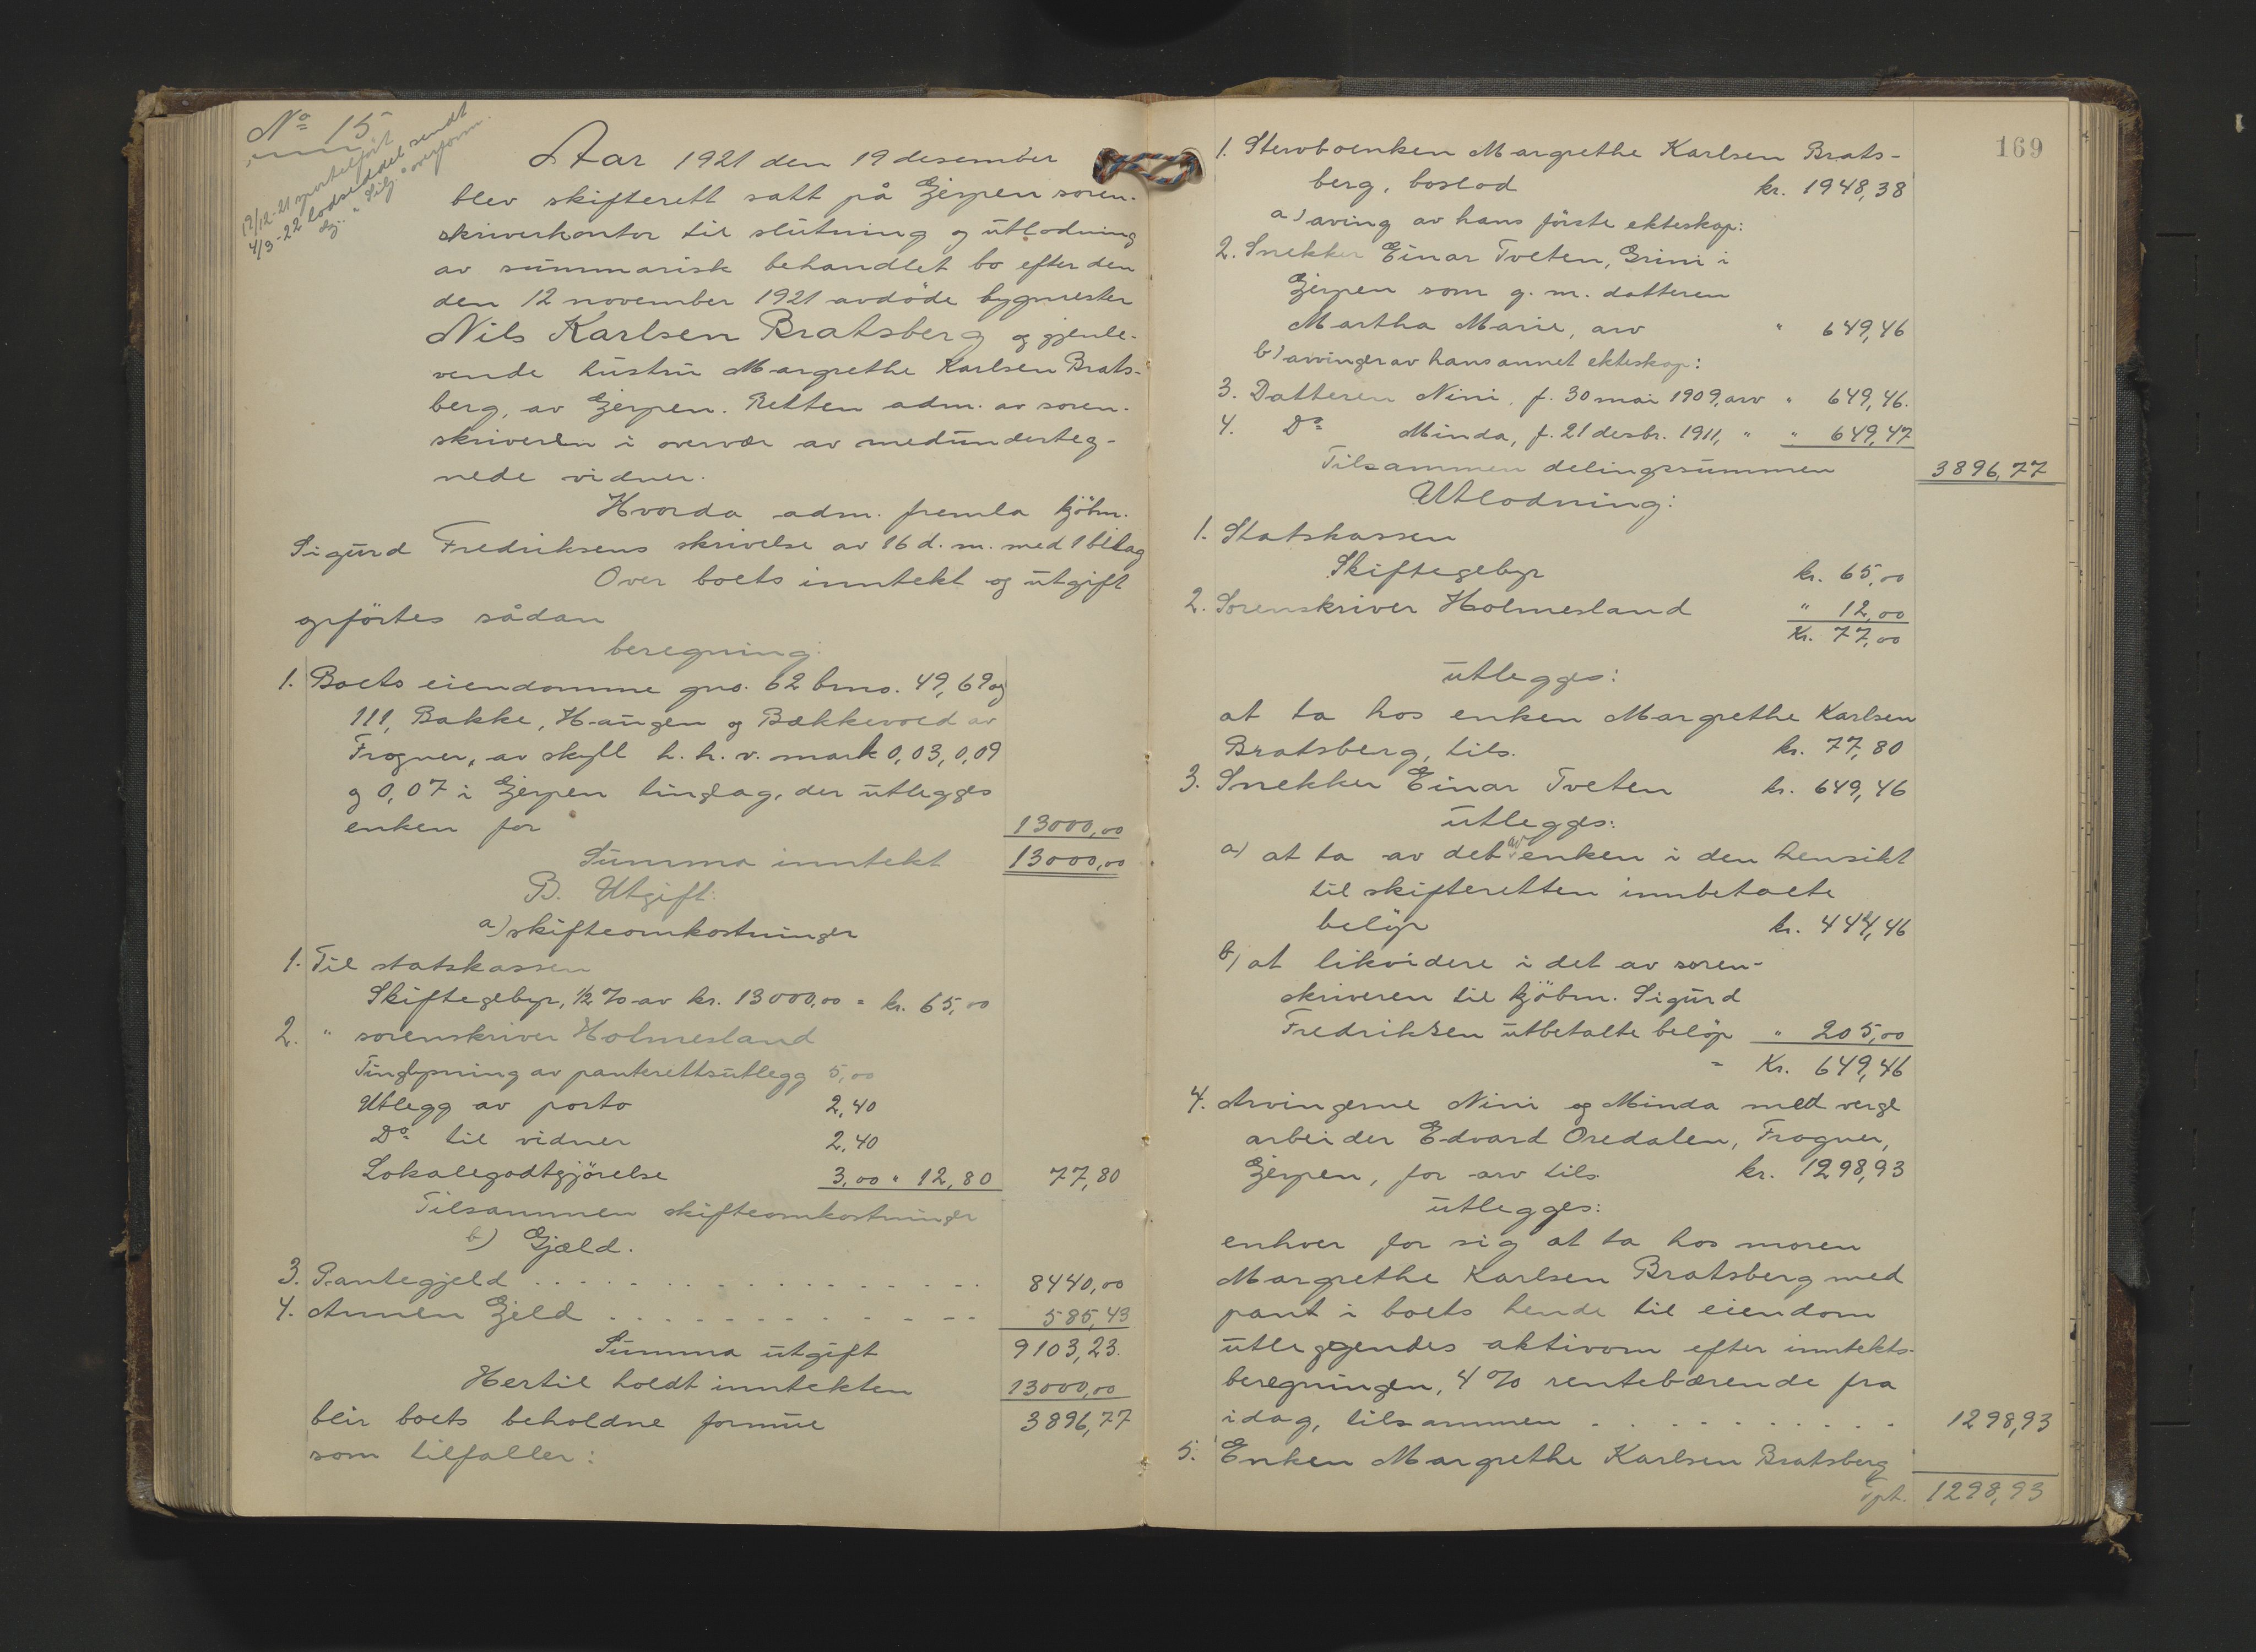 No 15
19/12-21 sportelført
4/3-22 lodseddel sendt
Dg. " Silj. overform.
Aar 1921 den 19 desember
blev skifterett satt på Gjerpen soren-
skriverkontor til slutning og utlodning
av summarisk behandlet bo efter den
den 12 november 1921 avdöde bygmester
Nils Karlsen Bratsberg og gjenle-
vende hustru Margrethe Karlsen Brats-
berg, av Gjerpen. Retten adm. av soren-
skriveren i overvær av medunderteg-
nede vidner.
Hvorda adm. fremla kjöbm.
Sigurd Fredriksens skrivelse av 16 d. m. med 1 bilag
Over boets inntekt og utgift
opförtes sådan
beregning:
1. Boets eiendomme gno. 62 bruno. 49, 69 og
111, Bakke, Haugen og Bækkevold av
Frogner, av skyll h. h. v. mark 0,03, 0,09
og 0,07 i Gjerpen tinglag, der utlegges
enken for 13000,00
Summa inntekt 13000,00
B. Utgift:
a) skifteomkostninger
1. Til statskassen
Skiftegebyr, 1/2 % av kr. 13000,00 = kr. 65,00
2. " sorenskriver Holmesland
Tinglysning av panterettsutlegg 5,00
Utlegg av porto 2,40
Do til vidner 2,40
Lokalegodtgjörelse 3,00 " 12,80 77,80
Tilsammen skifteomkostninger
b) Gjæld.
3. Pantegjeld . . . . . . . . . . . . . 8440,00
4. Annen Gjeld . . . . . . . . . . . . 585,43
Summa utgift 9103,23.
Hertil holdt inntekten 13000,00
blir boets beholdne formue 3896,77
som tilfaller:
169
1. Stervboenken Margrethe Karlsen Brats-
berg, boslod kr. 1948,38
a) arving av hans förste ekteskap:
2. Snekker Einar Tveten, Grini i
Gjerpen som g. m. datteren
Martha Marie, arv " 649,46
b) arvinger av hans annet ekteskap:
3. Datteren Nini, f. 30 mai 1909, arv " 649,46.
4. Do Minda, f. 21 desbr. 1911, " " 649,47
Tilsammen delingssummen 3896,77
Utlodning:
1. Statskassen
Skiftegebyr kr. 65,00
2. Sorenskriver Holmesland " 12,00
Kr. 77,00
utlegges:
at ta hos enken Margrethe Karlsen
Bratsberg, tils. kr. 77,80
3. Snekker Einar Tveten kr. 649,46
utlegges:
a) at ta av det av enken i den hensikt
til skifteretten innbetalte
belöp kr. 444,46
b) at likvidere i det av soren-
skriveren til kjöbm. Sigurd
Fredriksen utbetalte belöp " 205,00
= Kr. 649,46
4. Arvingerne Nini og Minda med verge
arbeider Edvard Oredalen, Frogner,
Gjerpen, for arv tils. kr. 1298,93
utlegges:
enhver for sig at ta hos moren
Margrethe Karlsen Bratsberg med
pant i boets hende til eiendom
utleggendes aktivom efter inntekts-
beregningen, 4 % rentebærende fra
idag, tilsammen . . . . . . . . . . 1298,93
5. Enken Margrethe Karlsen Bratsberg
Tpt. 1298,93